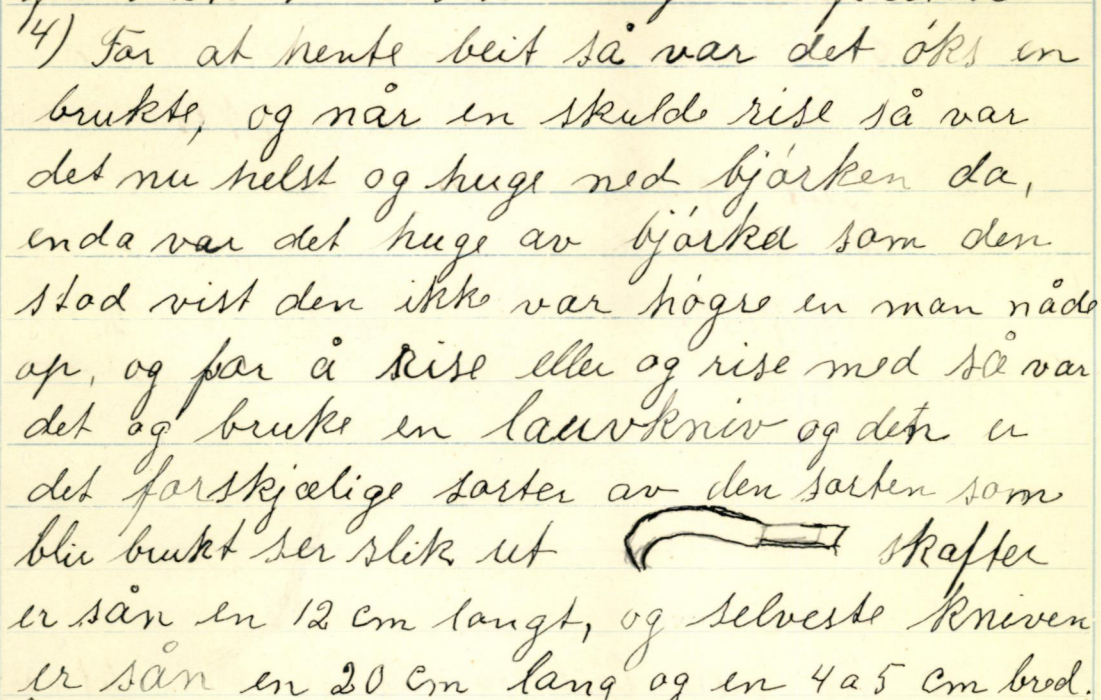 4) For at hente beit så var det óks en
brukte, og når en skulde rise så var
det nu helst og huge ned bjórken da,
enda var det huge av bjórka som den
stod vist den ikke var hógre en man nåde
op, og for å rise eller og rise med så var
det og bruke en lauvkniv og den er
det forskjælige sorter av den sorten som
blir brukt ser slik ut skafter
er sån en 12 cm langt, og selveste kniven
er sån en 20 cm lang og en 4 a 5 cm bred.